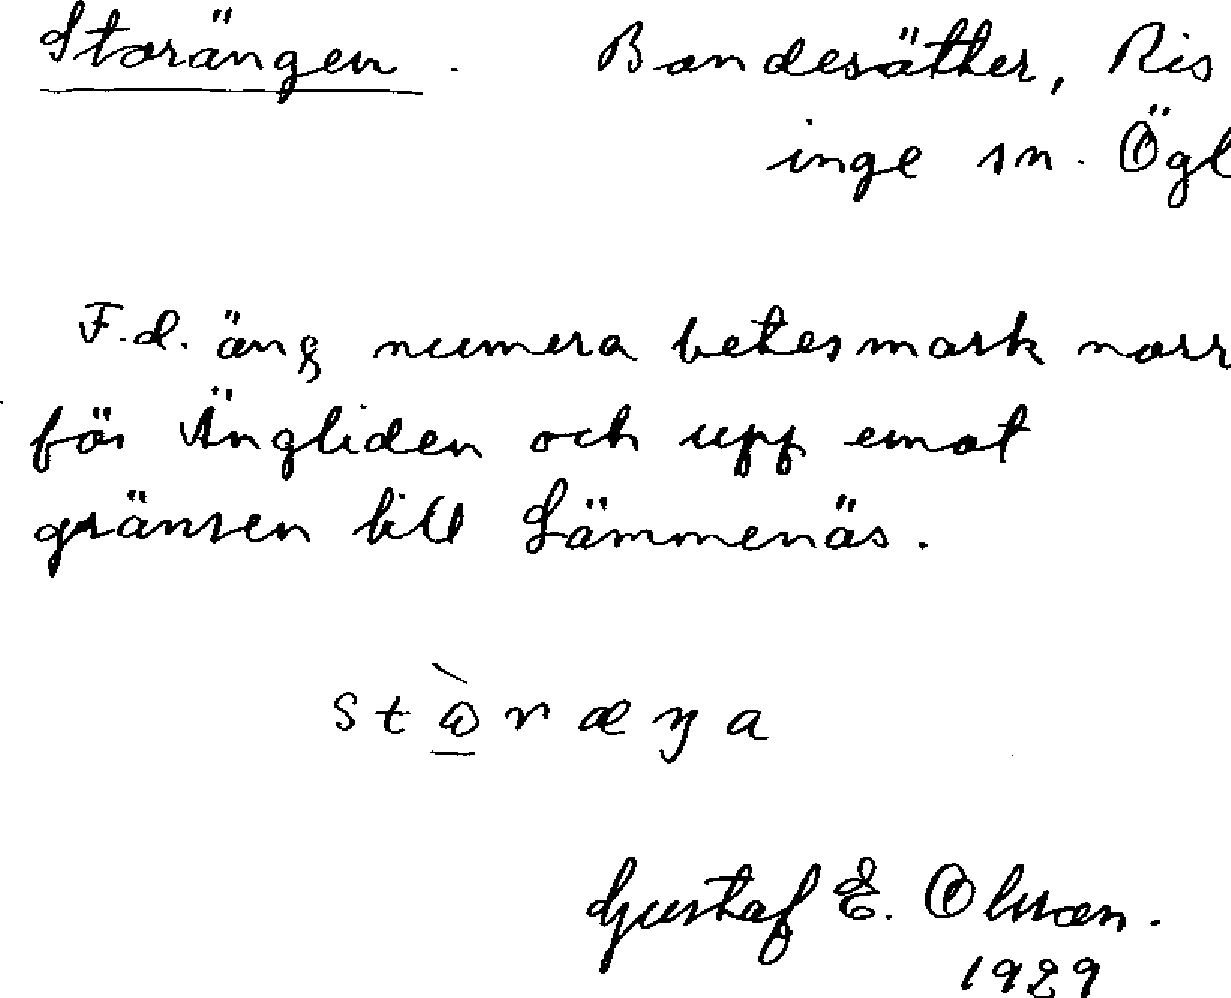 Storängen. Bandesätter, Ris
inge sn. Ögl
F.d. äng numera betesmark norr
för Ängliden och upp emot
gränsen till Lämmenäs.
stὼræŋa
Gustaf E. Olsson.
1929